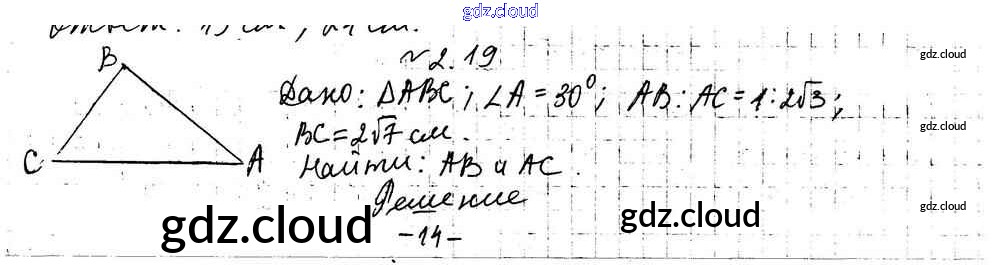 gdz.cloud
№2.19.
gdz.cloud
Дано: ΔABC; ∠A = 30°; AB : AC = 1 : 2√3;
B
BC = 2√7 см.
gdz.cloud
C
A
Найти: AB и AC.
Решение
gdz.cloud
gdz.cloud
gdz.cloud
-14-